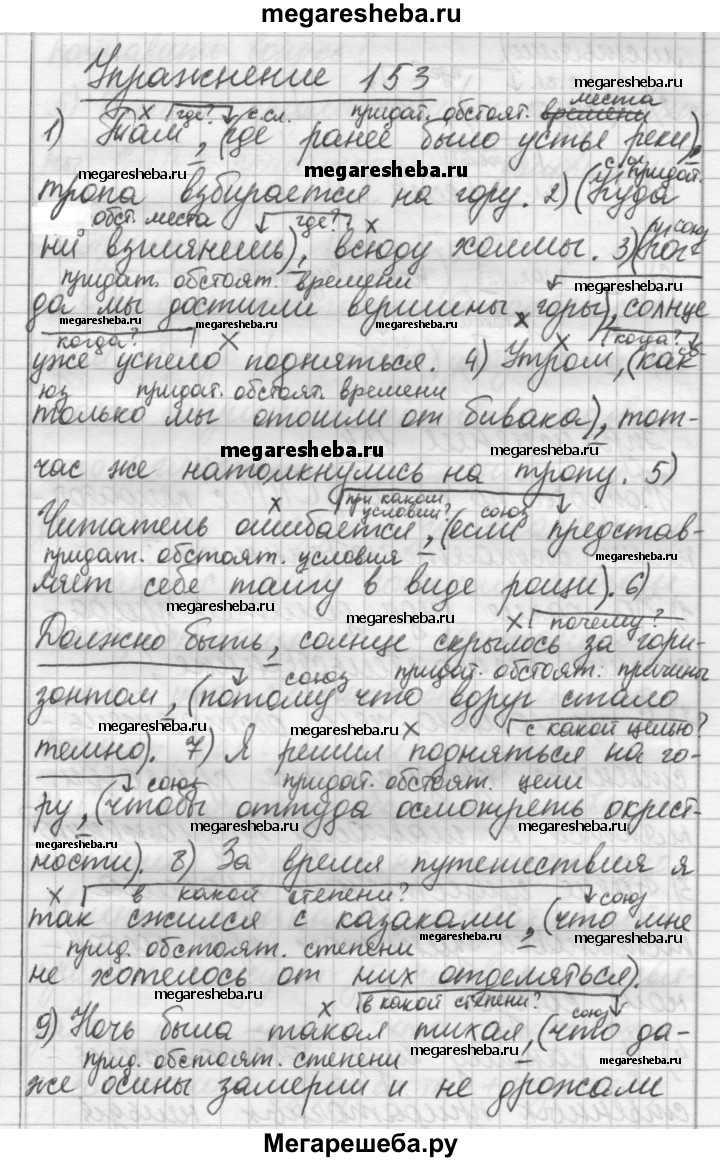 megaresheba.ru
Упражнение 153
megaresheba.ru
места
где? с.сл. придат. обстоят. времени
1) Там, (где ранее было устье реки),
megaresheba.ru
megaresheba.ru
с.сл. придат.
тропа взбирается на гору. 2) (Куда
обст. места где? союз
ни взглянешь), всюду холмы. 3) (Ког-
придат. обстоят. времени
да мы достигли вершины горы), солнце
megaresheba.ru megaresheba.ru megaresheba.ru
когда? когда?
уже успело подняться. 4) Утром, (как
юз придат. обстоят. времени
только мы отошли от бивака), тот-
megaresheba.ru
час же натолкнулись на тропу. 5)
при каком
условии? союз
Читатель ошибается, (если представ-
придат. обстоят. условия megaresheba.ru
ляет себе тайгу в виде рощи). 6)
megaresheba.ru
megaresheba.ru
почему?
Должно быть, солнце скрылось за гори-
союз придат. обстоят. причины
зонтом, (потому что вдруг стало
megaresheba.ru megaresheba.ru megaresheba.ru
с какой целью?
темно). 7) Я решил подняться на го-
союз придат. обстоят. цели
ру, (чтобы оттуда осмотреть окрест-
megaresheba.ru megaresheba.ru
ности). 8) За время путешествия я
в какой степени? союз
так сжился с казаками, (что мне
прид. обстоят. степени megaresheba.ru megaresheba.ru
не хотелось от них отделяться).
megaresheba.ru
в какой степени? союз
9) Ночь была такая тихая, (что да-
прид. обстоят. степени megaresheba.ru megaresheba.ru
же осины замерли и не дрожали
Мегарешеба.ру